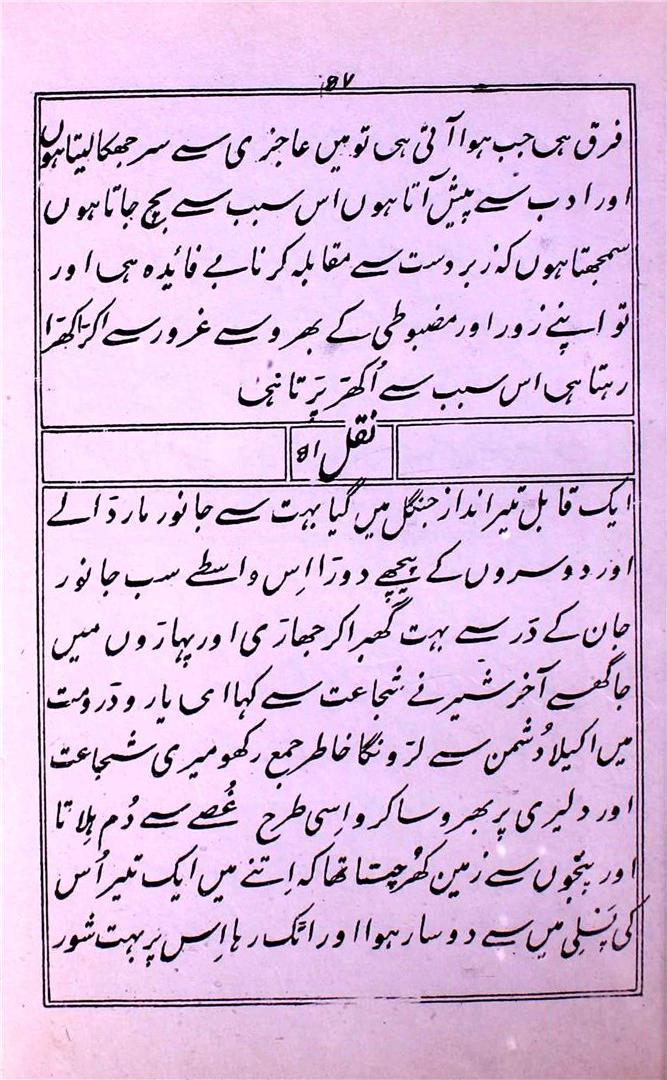 ۵۷
فرق ہی جب ہوا آتی ہی تو میں عاجزی سے سر جھکا لیتا ہوں
اور ادب سے پیش آتا ہوں اس سبب سے بچ جاتا ہوں
سمجھتا ہوں کہ زبردست سے مقابلہ کرنا بے فائدہ ہی اور
تو اپنے زور اور مضبوطی کے بھروسے غرور سے اکڑا کھڑا
رہتا ہی اس سبب سے اُکھڑ پڑتا ہی
نقل ۵۱
ایک قابل تیرانداز جنگل میں گیا بہت سے جانور مار ڈالے
اور دوسروں کے پیچھے دوڑا اِس واسطے سب جانور
جان کے ڈر سے بہت گھبرا کر جھاڑی اور پہاڑوں میں
جا گھسے آخر شیر نے شجاعت سے کہا ای یارو ڈرو مت
میں اکیلا دُشمن سے لڑونگا خاطر جمع رکھو میری شجاعت
اور دلیری پر بھروسا کرو اِسی طرح غُصے سے دُم ہِلاتا
اور پنجوں سے زمین کھُرچتا تھا کہ اِتنے میں ایک تیر اُس
کی پَسلی میں سے دوسار ہوا اور اٹک رہا اِس پر بہت شور